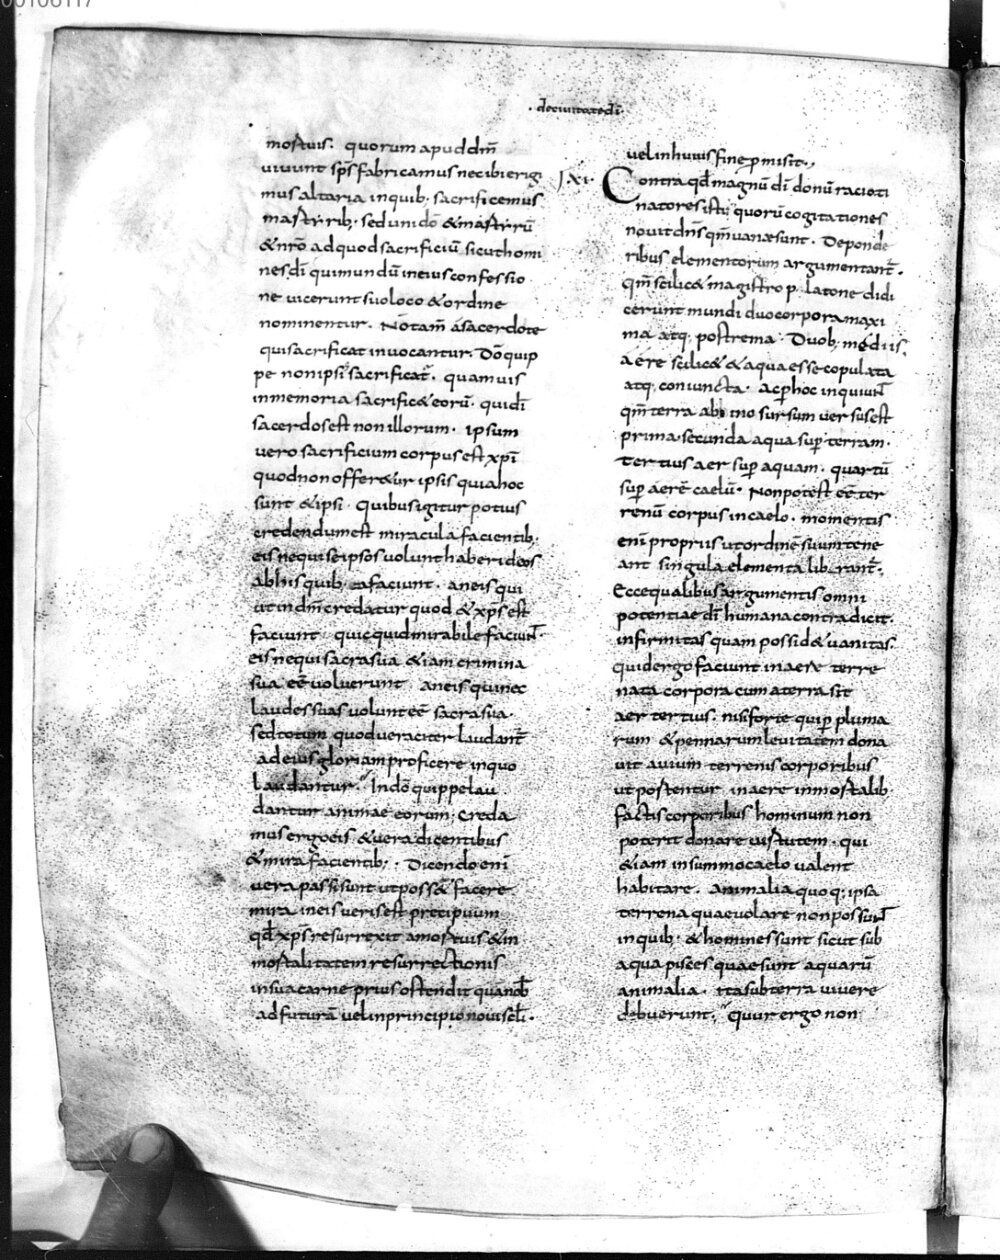 00106117
· deciuitatedī ·
mortuis · quorum apud dm̄
uiuunt sp̄s fabricamus nec ibi erigi
mus altaria in quib; sacrificemus
martyrib; sed uni dō & martyrū
& nr̄o ad quod sacrificiū sicut homi
nes dī qui mundū in eius confessio
ne uicerunt suo loco & ordine
nominentur · Non tam̄ a sacerdote
qui sacrificat inuocantur · Dō quip
pe non ipsi sacrificat̄ · quamuis
in memoria sacrific& eorū · qui dī
sacerdos est non illorum · ipsum
uero sacrificium corpus est xp̄i
quod non offer&ur ipsis quia hoc
sunt & ipsi · Quibus igitur potius
credendum est miracula facientib;
eis nequi se ipsos uolunt haberi deos
ab his quib; ea faciunt · an eis qui
ut in dm̄ credatur quod & xp̄s est
faciunt quicquid mirabile faciun̄t ·
eis nequi sacra sua &iam crimina
sua eē uoluerunt · an eis qui nec
laudes suas uolunt eē sacra sua ·
sed totum quod ueraciter laudant̄
ad eius gloriam proficere in quo
laudantur · In dō quippe lau
dantur animae eorum; Creda
mus ergo eis & uera dicentibus
& mira facientib; · Dicendo enī
uera passi sunt ut poss& facere
mira · in eis ueris est precipuum
qd̄ xp̄s resurrexit a mortuis & in
mortalitatem resurrectionis
in sua carne prius ostendit quam nob̄
ad futurā uel in principio noui scl̄i ·
uel in huius fine p misit ·,
·XI· Contra qd̄ magnū dī donū ratioci
natores isti quorū cogitationes
nouit dn̄s qm̄ uanae sunt · De ponde
ribus elementorum argumentant̄ ·
qm̄ scilic& magistro platone didi
cerunt mundi duo corpora maxi
ma atq; postrema · Duob; mediis
aere scilic& & aqua esse copulata
atq; coniuncta · ac p hoc inquiun̄t
qm̄ terra ab imo sursum uersus est
prima secunda aqua sup̄ terram ·
tertius aer sup̄ aquam · quartū
sup̄ aerē caelū · Non potest eē ter
renū corpus in caelo · momentis
enī propriis ut ordinē suum tene
ant singula elementa librant̄ ·
Ecce qualibus argumentis omni
potentiae dī humana contradicit
infirmitas quam possid& uanitas ·
quid ergo faciunt in aere terre
na tā corpora cum a terra sit
aer tertius · nisi forte qui p pluma
rum & pennarum leuitatem dona
uit auium terrenis corporibus
ut portentur in aere inmortalib;
factis corporibus hominum non
poterit donare uirtutem · qui
&iam in summo caelo ualent
habitare · Animalia quoq; ipsa
terrena quae uolare non possun̄t
in quib; & homines sunt sicut sub
aqua pisces quae sunt aquarū
animalia · ita sub terra uiuere
debuerunt; Quur ergo non